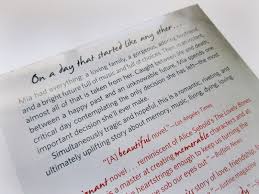 On a day that started like any other...
Mia had everything: a loving family, a gorgeous, admiring boyfriend,
and a bright future full of music and full of choices. Then, in an instant,
almost all of that is taken from her. Caught between life and death,
between a happy past and an unknowable future, Mia spends one
critical day contemplating the only decision she has left—the most
important decision she'll ever make.
Simultaneously tragic and hopeful, this is a romantic, riveting, and
ultimately uplifting story about memory, music, living, dying, loving.
"[A] beautiful novel." —Los Angeles Times
novel... reminiscent of Alice Sebold's The Lovely Bones.
a master at creating memorable characters
heartstrings enough to keep us turning